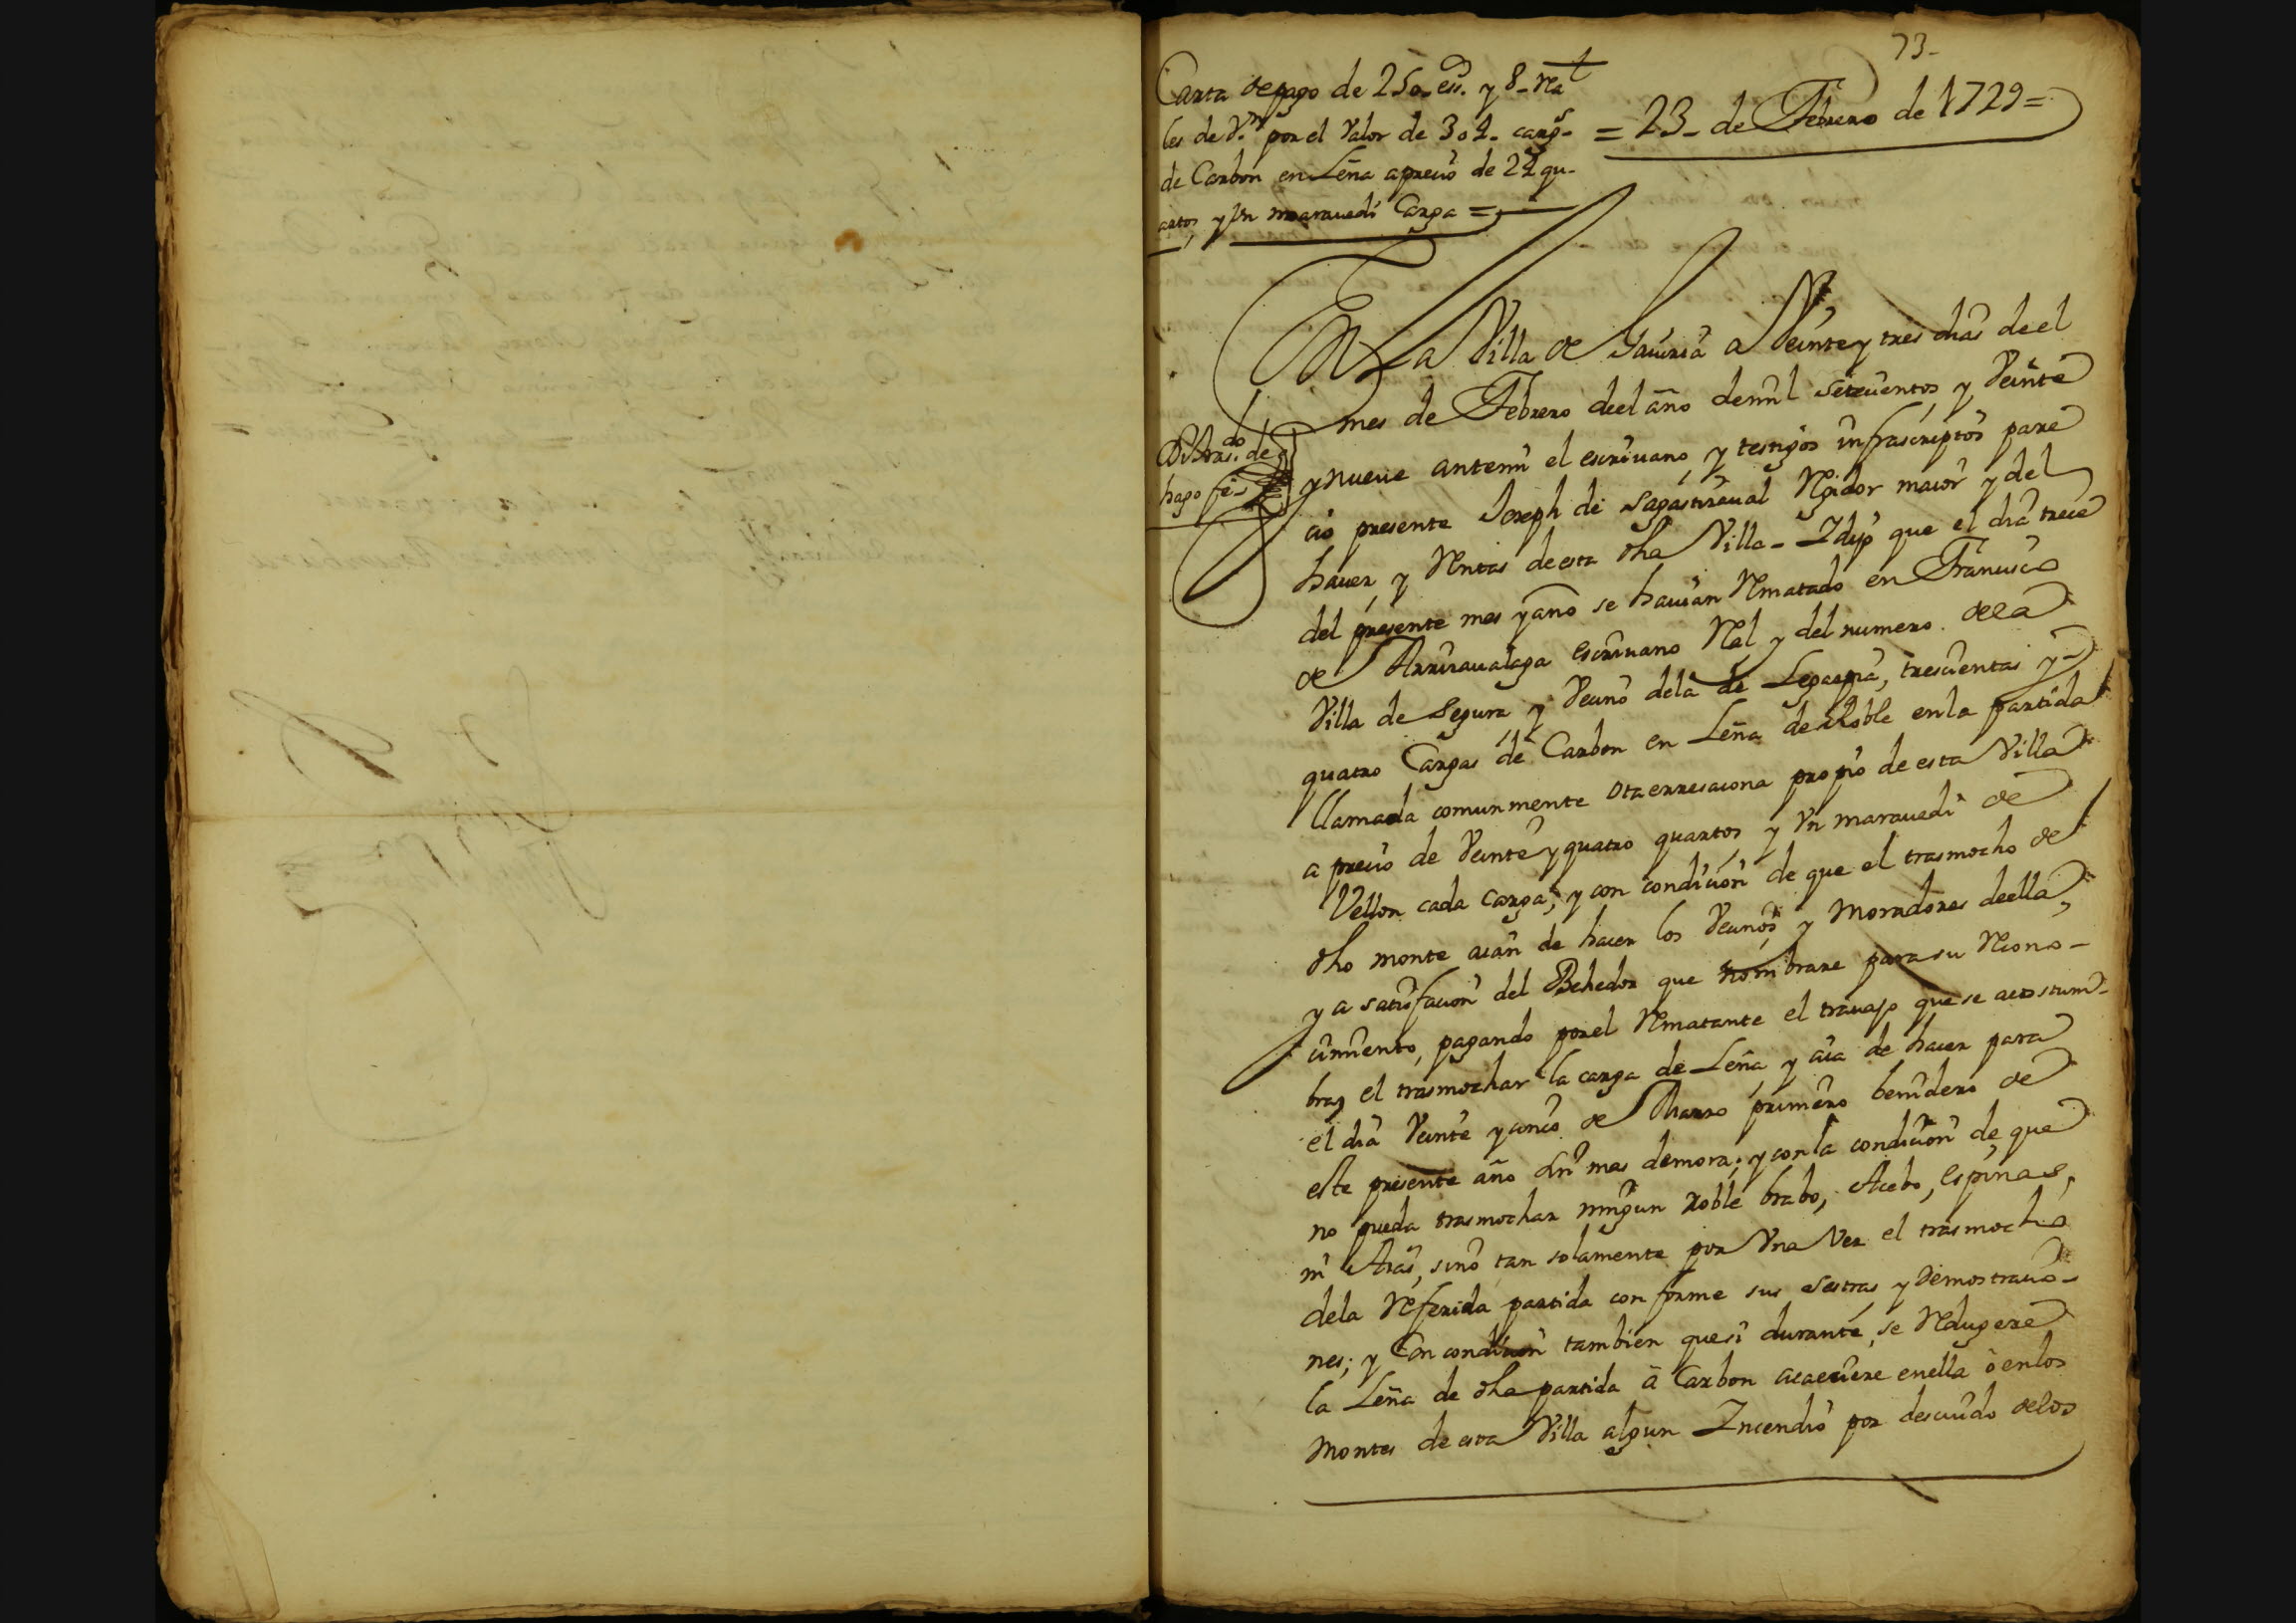 73-
Carta de pago de 250 ess. y 8 rea
les de Vn por el Valor de 304 cargs
de Carbon en Leña a precio de 24 qu-
artos, y Vn marauedi Carga =
= 23 de Febrero de 1729 =
En La Villa de Gauiria a Veinte y tres dias de el
mes de Febrero de el año de mil setecientos, y Veinte
y nueue antemi el escriuano, y testigos infrascriptos pare
cio presente Joseph de Sagastiraual Regidor maior y del
hauer, y Rentas de esta dha Villa - Y dijo que el dia trece
del presente mes y año se hauian Rematado en Francisco
de Arriraualaga escriuano Real y del numero de la
Villa de Segura, y Vecino de la de Legazpia, trescientas y
quatro Cargas de Carbon en Leña de Roble en la partida
llamada comunmente Otaerresacona propio de esta Villa
a precio de Veinte y quatro quartos, y Vn marauedi de
Vellon cada carga; y con condicion de que el trasmocho de
dho monte aian de hacer los Vecinos, y Moradores de ella,
y a satisfacion del Behedor que nombrare para su Recono-
cimiento, pagando por el Rematante el trauajo que se acostum-
bra, el trasmochar la carga de Leña y aia de hacer para
el dia Veinte y cinco de Marzo primero benidero de
este presente año sin mas demora; y con la condicion de que
no pueda trasmochar ningun roble brabo, Acebo, espinas,
ni Aias, sino tan solamente por Vna Vez el trasmocho
de la Referida partida conforme sus sestras y demostracio-
nes; y Con condicion tambien que si durante, se Redugere
la Leña de dha partida á Carbon acaeciere en ella ó en los
Montes de esta Villa algun Incendio por descuido de los
hago fe